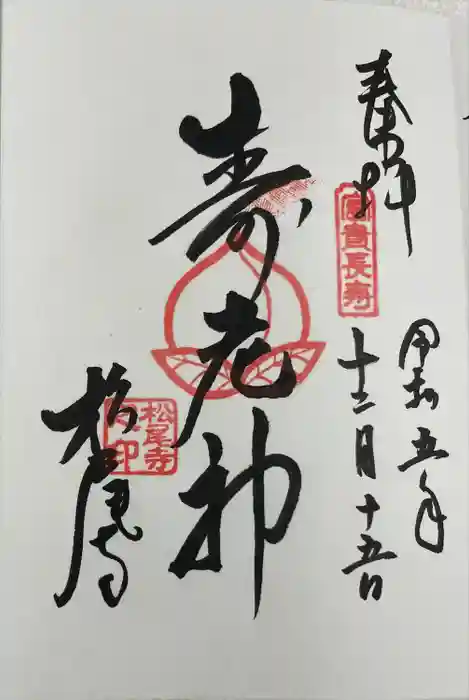 奉拝
富貴長寿
令和五年
十二月十五日
寿老神
松尾寺
松尾寺
印